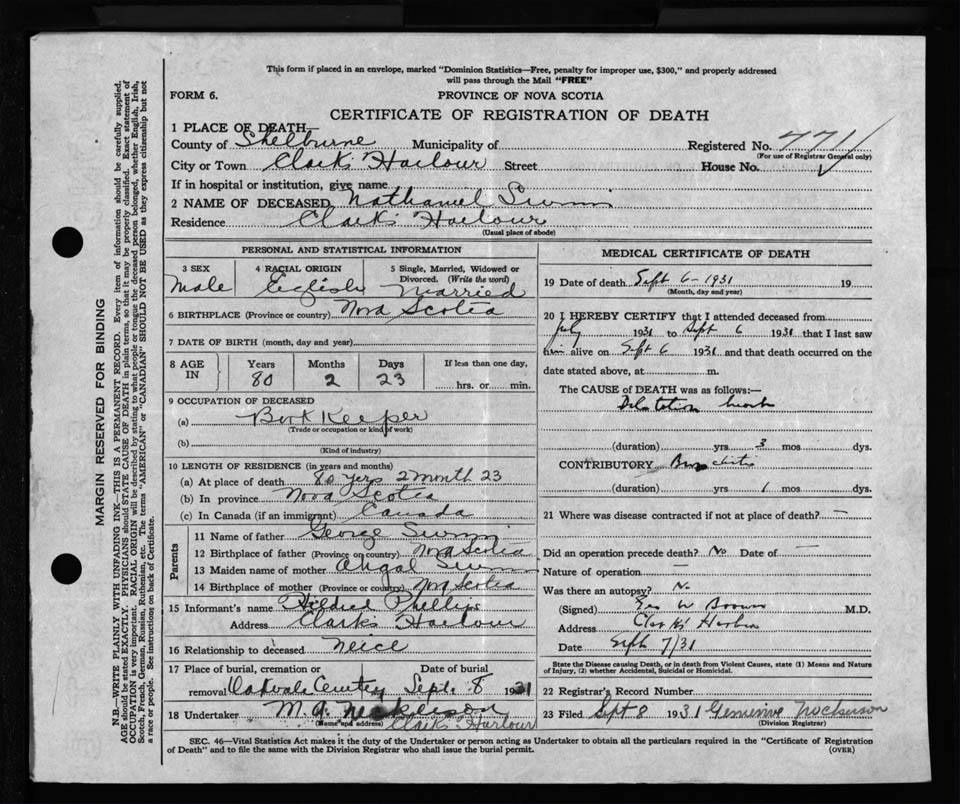 This form if placed in an envelope, marked "Dominion Statistics—Free, penalty for improper use, $300," and properly addressed
will pass through the Mail "FREE"
FORM 6. PROVINCE OF NOVA SCOTIA
CERTIFICATE OF REGISTRATION OF DEATH
1 PLACE OF DEATH
County of Shelburne Municipality of Registered No. 771
(For use of Registrar General only)
City or Town Clark's Harbour Street House No.
If in hospital or institution, give name
2 NAME OF DECEASED Nathaniel Swim
Residence Clark's Harbour
(Usual place of abode)
PERSONAL AND STATISTICAL INFORMATION
3 SEX 4 RACIAL ORIGIN 5 Single, Married, Widowed or
Divorced. (Write the word)
Male English Married
6 BIRTHPLACE (Province or country) Nova Scotia
7 DATE OF BIRTH (month, day and year)
8 AGE IN Years Months Days If less than one day,
80 2 23 hrs. or min.
9 OCCUPATION OF DECEASED
(a) Book Keeper
(Trade or occupation or kind of work)
(b)
(Kind of industry)
10 LENGTH OF RESIDENCE (in years and months)
(a) At place of death 80 yers 2 month 23
(b) In province Nova Scotia
(c) In Canada (if an immigrant) Canada
Parents
11 Name of father George Swim
12 Birthplace of father (Province or country) Nova Scotia
13 Maiden name of mother Abigal Swim
14 Birthplace of mother (Province or country) Nova Scotia
15 Informant's name Hildred Phillips
Address Clarks Harbour
16 Relationship to deceased Neice
17 Place of burial, cremation or Date of burial
removal Sept. 8 1931
18 Undertaker M. A. Nickerson
(Name and address) Clarks Harbour
MEDICAL CERTIFICATE OF DEATH
19 Date of death Sept 6 - 1931 19
(Month, day and year)
20 I HEREBY CERTIFY that I attended deceased from
July 1931 to Sept 6 1931 that I last saw
him alive on Sept 6 1931 and that death occurred on the
date stated above, at m.
The CAUSE of DEATH was as follows:—
Dilatation
(duration) yrs 3 mos dys.
CONTRIBUTORY Bronchitis
(duration) yrs 1 mos dys.
21 Where was disease contracted if not at place of death? —
Did an operation precede death? No Date of —
Nature of operation —
Was there an autopsy? No
(Signed) Geo W Brown M.D.
Address Clark's Harbor
Date Sept 7/31
State the Disease causing Death, or in death from Violent Causes, state (1) Means and Nature
of Injury, (2) whether Accidental, Suicidal or Homicidal.
22 Registrar's Record Number
23 Filed Sept 8 1931 Nickerson
(Division Registrar)
SEC. 46—Vital Statistics Act makes it the duty of the Undertaker or person acting as Undertaker to obtain all the particulars required in the "Certificate of Registration
of Death" and to file the same with the Division Registrar who shall issue the burial permit. (OVER)
MARGIN RESERVED FOR BINDING
N.B.—WRITE PLAINLY WITH UNFADING INK—THIS IS A PERMANENT RECORD. Every item of information should be carefully supplied.
AGE should be stated EXACTLY. PHYSICIANS should STATE CAUSE OF DEATH in plain terms, so that it may be properly classified. Exact statement of
OCCUPATION is very important. RACIAL ORIGIN will be described by stating to what people or tongue the deceased person belonged, whether English, Irish,
Scotch, French, German, Russian, Ruthenian, etc. The terms "AMERICAN" or "CANADIAN" SHOULD NOT BE USED as they express citizenship but not
a race or people. See instructions on back of Certificate.